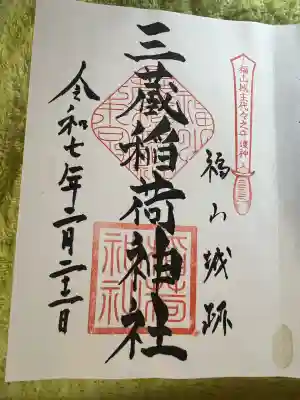 福山城主代々之守護神
福山城跡
三蔵稲荷神社
稲荷
神社
令和七年二月二十二日